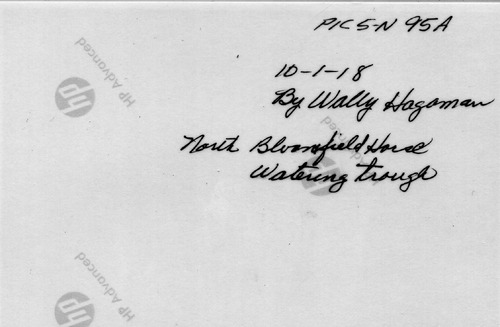 PICS-N 95A
10-1-18
By Wally Hagaman
North Bloomfield Horse
Watering trough
HP Advanced
hp
hp
HP Advanced
HP Advanced
hp